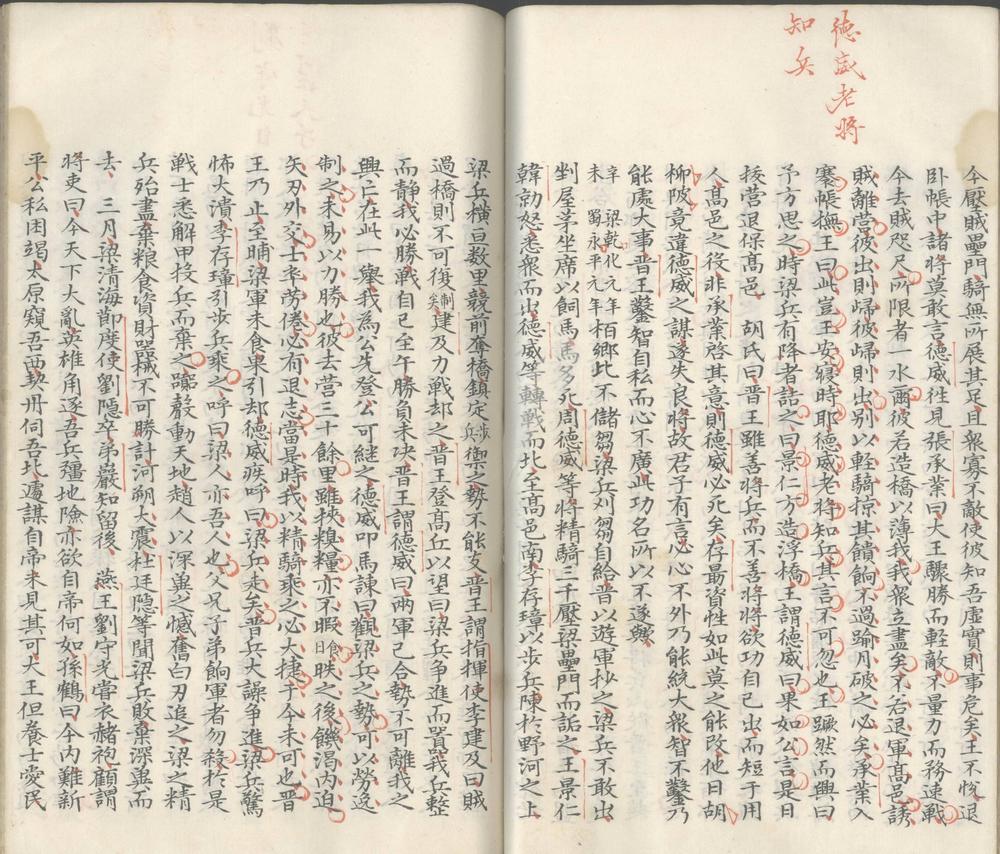 德威老將
知兵
今壓賊壘門騎無所展其足且衆寡不敵使彼知吾虛實則事危矣王不悅退
卧帳中諸將莫敢言德威徃見張承業曰大王驟勝而輕敵不量力而務速戰
今去賊咫尺所限者一水爾彼若造橋以薄我我衆立盡矣不若退軍高邑誘
賊離營彼出則歸彼歸則出別以輕騎掠其饋餉不過踰月破之必矣承業入
褰帳撫王曰此豈王安寢時耶德威老將知兵其言不可忽也王蹶然而興曰
予方思之時梁兵有降者詰之曰景仁方造浮橋王謂德威曰果如公言是日
拔營退保高邑　胡氏曰晉王雖善將兵而不善將將欲功自己出而短于用
人高邑之役非承業啓其意則德威必死矣存最資性如此莫之能改他日胡
柳陂竟違德威之謀遂失良將故君子有言心心不外乃能統大衆智不鑿乃
能處大事晉王鑿智自私而心不廣此功名所以不遂歟
辛未 梁乾化元年 蜀永平元年 柏鄉比不儲芻梁兵刈芻自給晉以遊軍抄之梁兵不敢出
剉屋茅坐席以飼馬馬多死周德威等將精騎三千壓梁壘門而詬之王景仁
韓勍怒悉衆而出德威等轉戰而北至高邑南李存璋以步兵陳於野河之上
梁兵橫亘数里競前奪橋鎮定步兵禦之勢不能支晉王謂指揮使李建及曰賊
過橋則不可復制矣建及力戰却之晉王登高丘以望曰梁兵争進而嚻我兵整
而靜我必勝戰自己至午勝負未決晉王謂德威曰兩軍已合勢不可離我之
興亡在此一舉我為公先登公可継之德威叩馬諫曰觀梁兵之勢可以勞逸
制之未易以力勝也彼去營三十餘里雖挾糗糧亦不暇食日昳之後饑渴内迫
矢刃外交士卒勞倦必有退志當是時我以精騎乘之必大捷于今未可也晉
王乃止至晡梁軍未食景引却德威疾呼曰梁兵走矣晉兵大譟争進梁兵驚
怖大潰李存璋引步兵乘之呼曰梁人亦吾人也父兄子弟餉軍者勿殺於是
戰士悉解甲投兵而棄之嚻聲動天地趙人以深兾之憾奮白刃追之梁之精
兵殆盡棄粮食資財器械不可勝計河朔大震杜廷隱等聞梁兵敗棄深兾而
去　三月梁清海節度使劉隱卒弟巖知留後　燕王劉守光嘗衣赭袍顧謂
將吏曰今天下大亂英雄角逐吾兵彊地險亦欲自帝何如孫鶴曰今内難新
平公私困竭太原窺吾西契丹伺吾北遽謀自帝未見其可大王但養士愛民